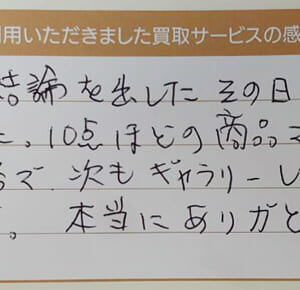 用いただきました買取サービスの感
結論を出したその日
た。10点ほどの商品
で、次もギャラリーレ
。 本当にありがと